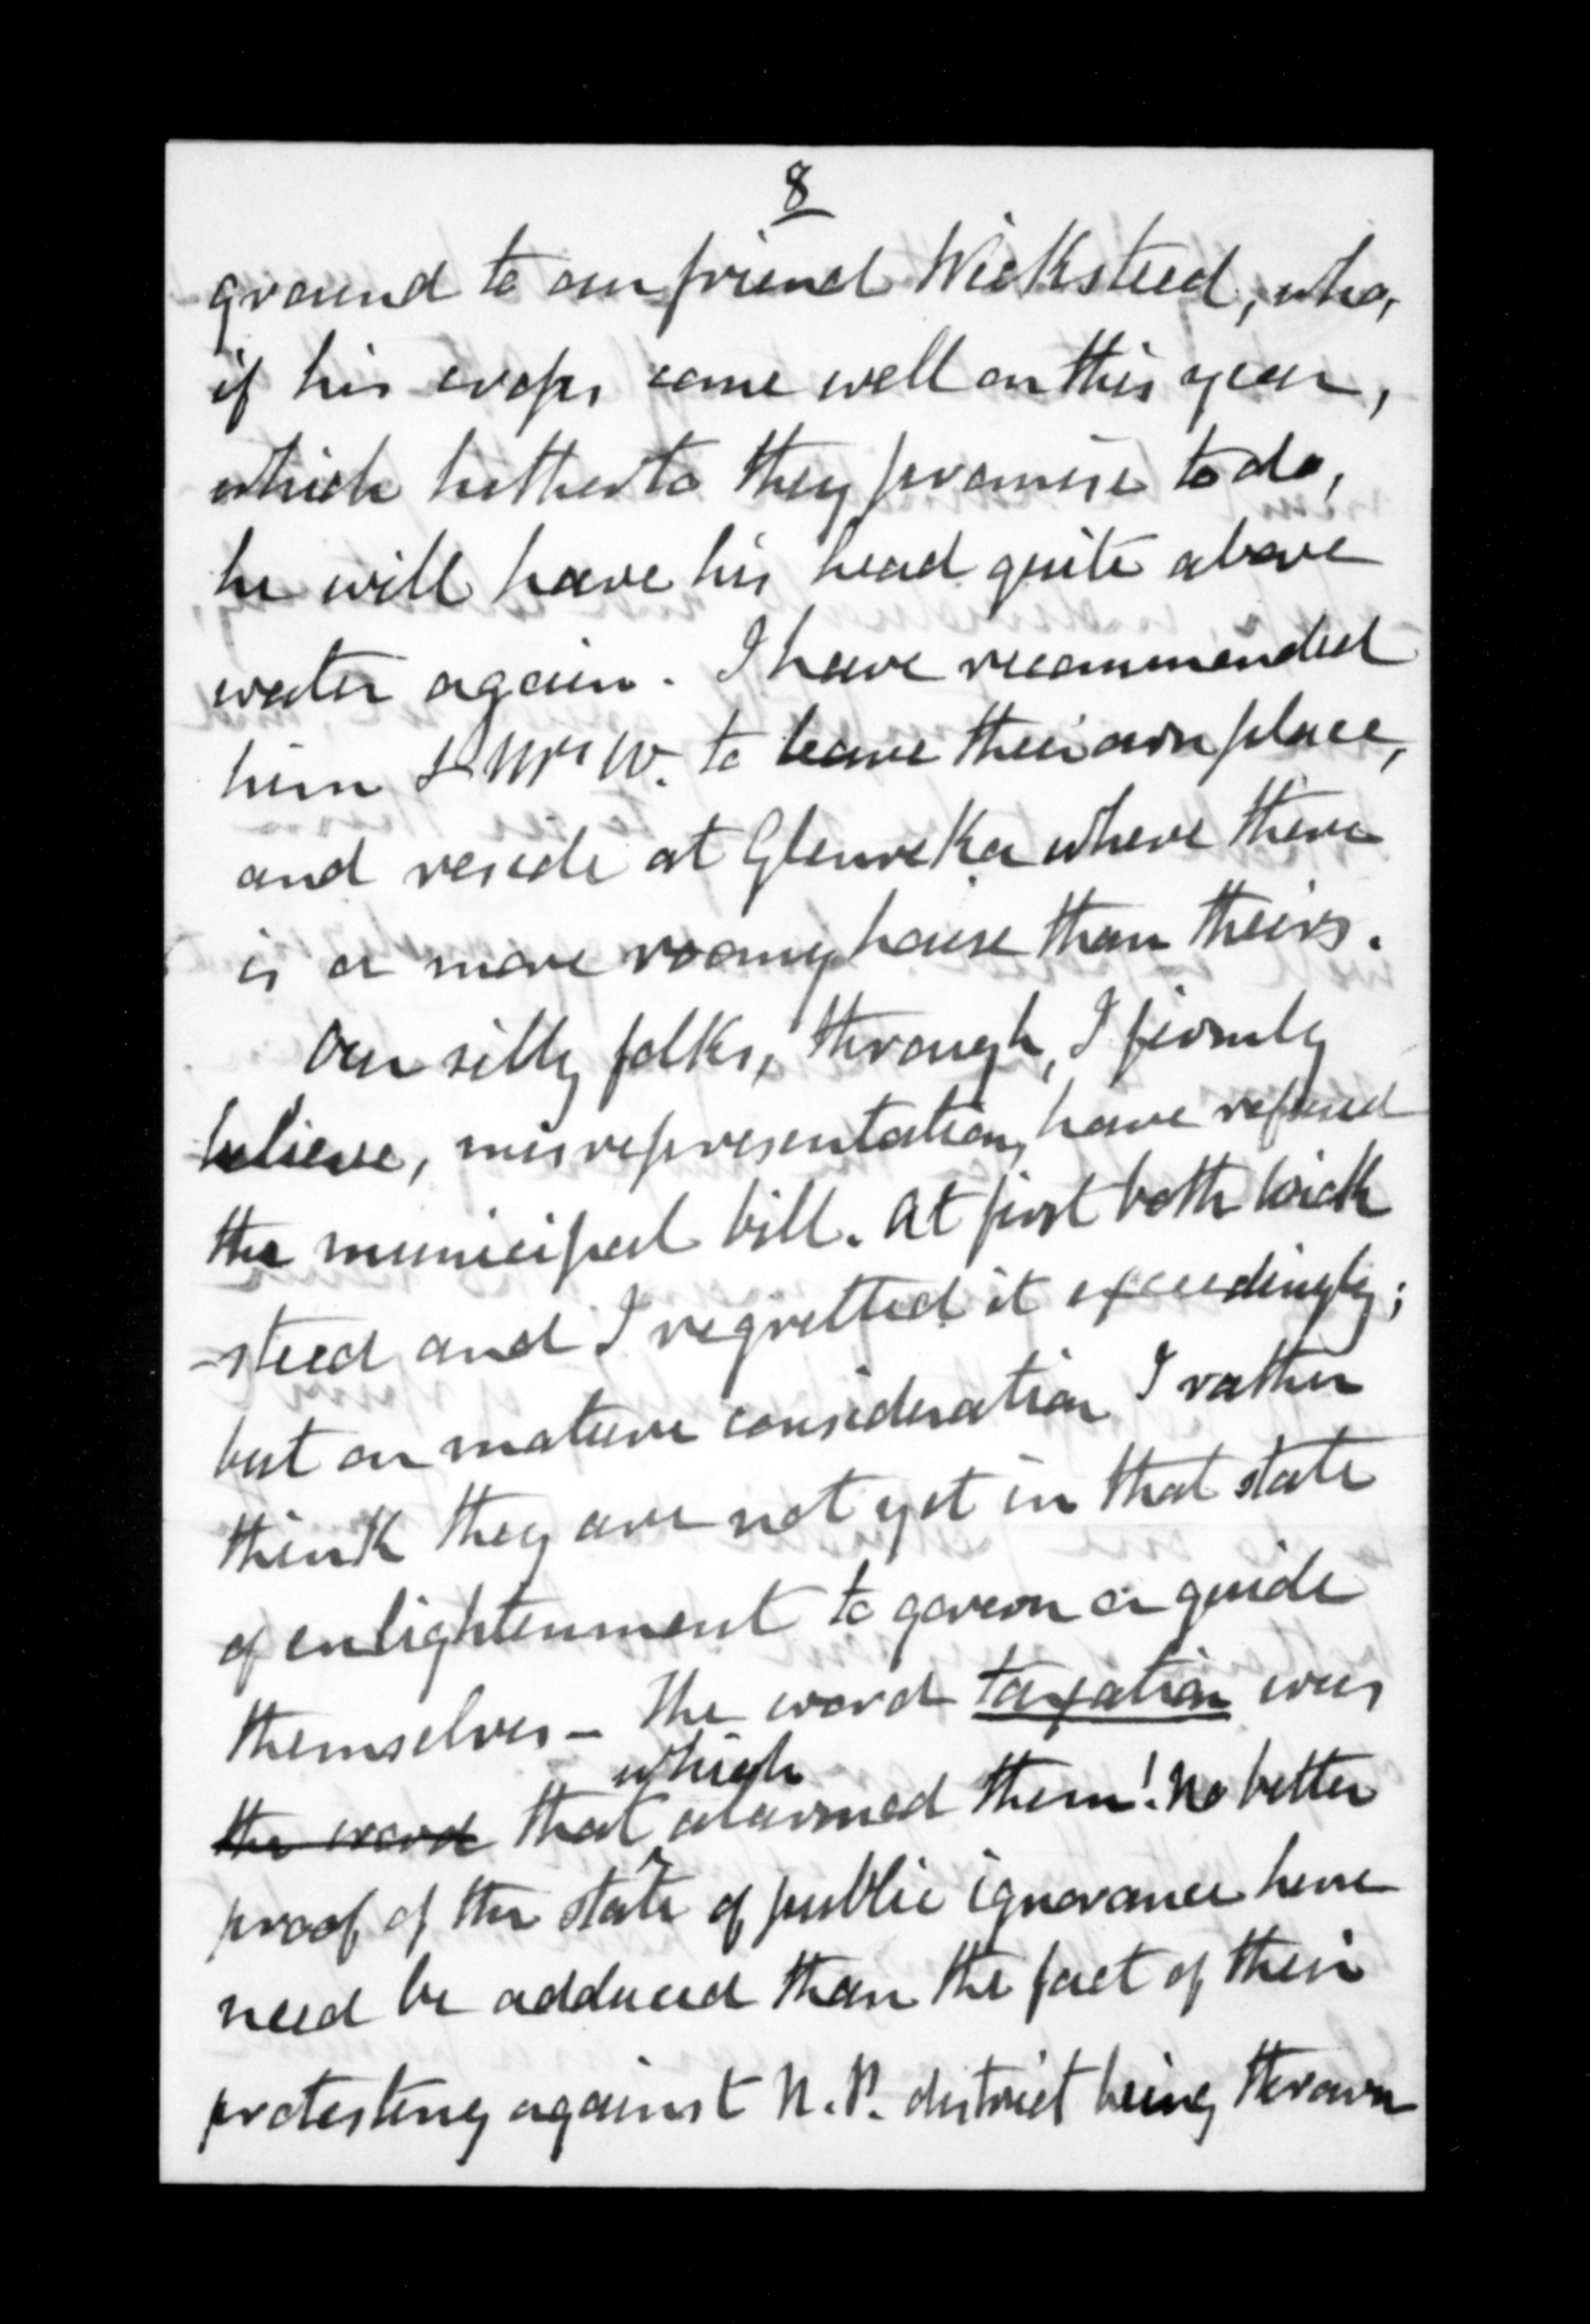 8
ground to our friend Wicksteed, who,
if his crops come well on this year,
which hitherto they promise to do,
he will have his head quite above
water again. I have recommended
him & Mrs W. to leave their own place,
and reside at Glenreka where there
is a more roomy house than theirs.
Our silly folks, through, I firmly
believe, misrepresentation, have refused
the municipal bill. At first both Wick
-steed and I regretted it exceedingly;
but on mature consideration I rather
think they are not yet in that state
of enlightenment to govern or guide
themselves - The word taxation was
which
the word that alarmed them! No better
proof of the state of public ignorance here
need be adduced than the fact of their
protesting against N.P. district being thrown